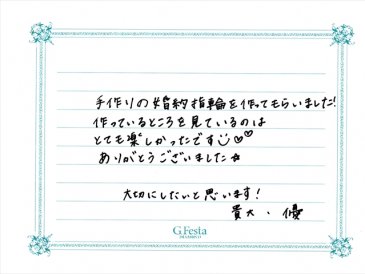 手作りの婚約指輪を作ってもらいました!
作っているところを見ているのは
とても楽しかったです☺♡♡
ありがとうございました☆
大切にしたいと思います!
貴大・優
G.Festa